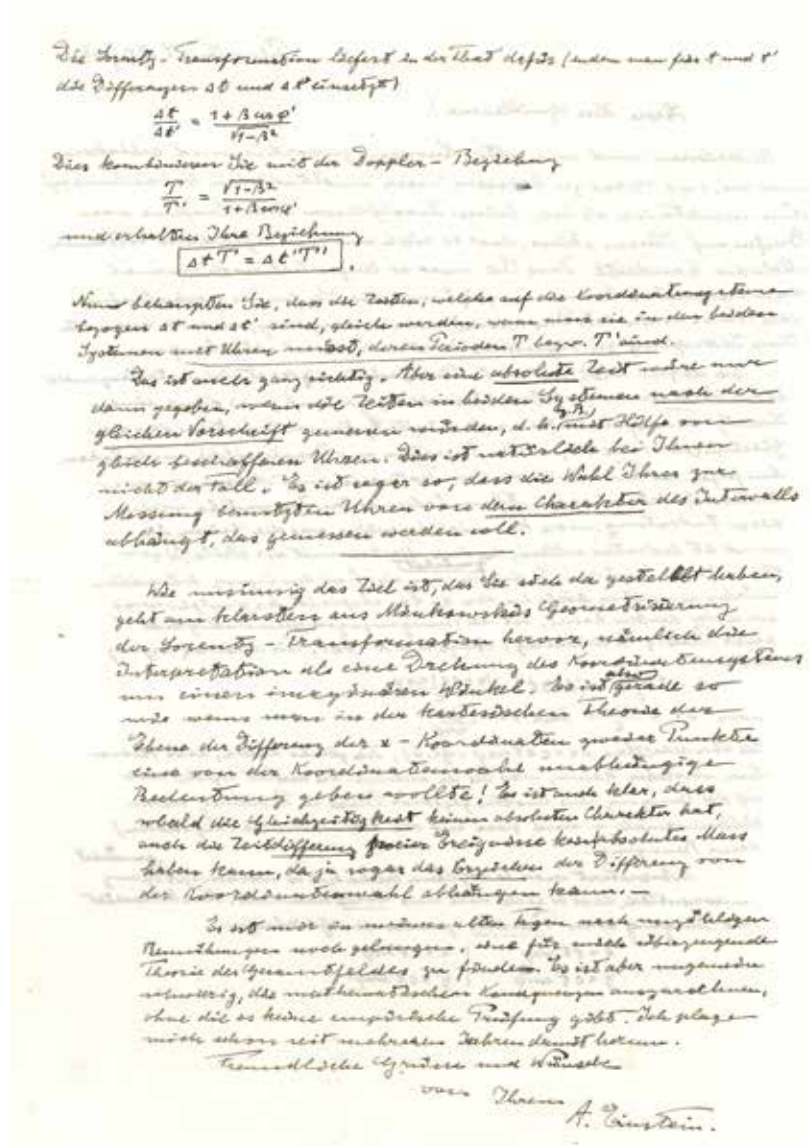 Die Lorentz-Transformation liefert in der That dafür (indem man für t und t'
die Differenzen Δt und Δt' einsetzt)
Δt/Δt' = (1+β cos φ')/√(1-β²)
Dies kombinieren Sie mit der Doppler-Beziehung
T/T' = √(1-β²)/(1+β cos φ')
und erhalten Ihre Beziehung
Δt T = Δt' T' .
Nun behaupten Sie, dass die Zeiten, welche auf die Koordinatensysteme
bezogen Δt und Δt' sind, gleich werden, wenn man sie in den beiden
Systemen mit Uhren misst, deren Perioden T bezw. T' sind.
Das ist auch ganz richtig. Aber eine absolute Zeit wäre nur
dann gegeben, wenn die Zeiten in beiden Systemen nach der
gleichen Vorschrift gemessen würden, d. h. (z. B.) mit Hilfe von
gleich beschaffenen Uhren. Dies ist natürlich bei Ihnen
nicht der Fall. Es ist sogar so, dass die Wahl Ihrer zur
Messung benutzten Uhren von dem Charakter des Intervalls
abhängt, das gemessen werden soll.
Wie unsinnig das Ziel ist, das Sie sich da gestellt haben,
geht am klarsten aus Minkowskis Geometrisierung
der Lorentz-Transformation hervor, nämlich die
Interpretation als eine Drehung des Koordinatensystems
um einen imaginären Winkel. Es ist also gerade so
wie wenn man in der kartesischen Theorie der
Ebene der Differenz der x-Koordinaten zweier Punkte
eine von der Koordinatenwahl unabhängige
Bedeutung geben wollte! Es ist auch klar, dass
sobald die Gleichzeitigkeit keinen absoluten Charakter hat,
auch die Zeitdifferenz zweier Ereignisse kein absolutes Mass
haben kann, da ja sogar das der Differenz von
der Koordinatenwahl abhängen kann.—
Es ist mir in meinen alten Tagen nach unzähligen
Bemühungen noch gelungen, eine für mich überzeugende
Theorie des Gesamtfeldes zu finden. Es ist aber ungemein
schwierig, die mathematischen Konsequenzen auszurechnen,
ohne die es keine empirische Prüfung gibt. Ich plage
mich schon seit mehreren Jahren damit herum.
Freundliche Grüsse und Wünsche
von Ihrem
A. Einstein.